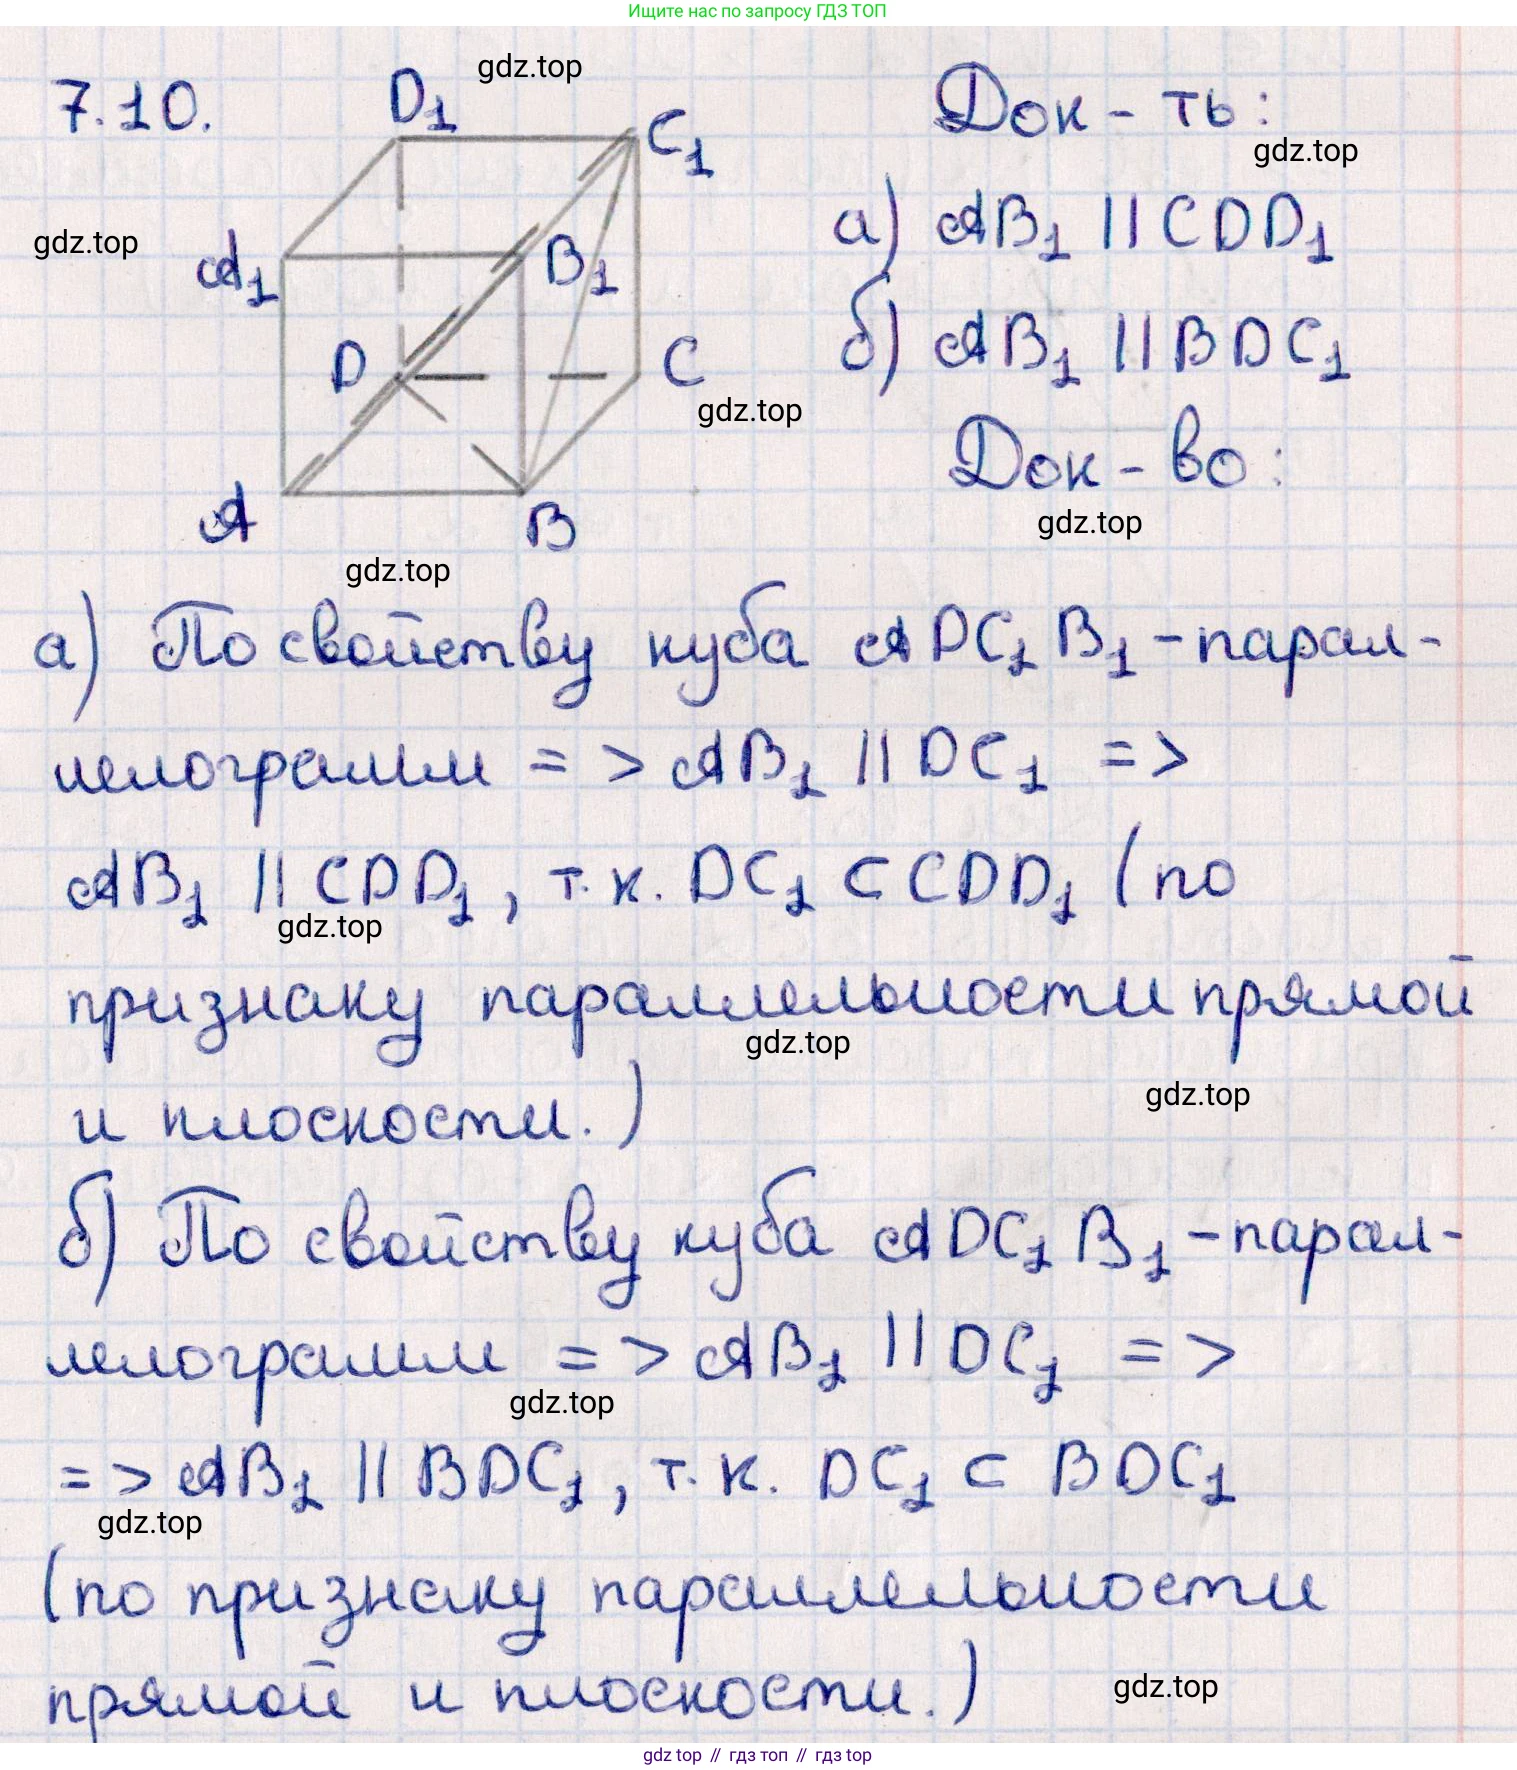 Ищите нас по запросу ГДЗ ТОП
7.10.
D₁
gdz.top
C₁
Док-ть:
gdz.top
а) AB₁ || CDD₁
gdz.top
A₁
B₁
б) AB₁ || BDC₁
D
C
gdz.top
Док-во:
A
B
gdz.top
gdz.top
а) По свойству куба ADC₁B₁ - парал-
лелограмм => AB₁ || DC₁ =>
AB₁ || CDD₁, т.к. DC₁ ⊂ CDD₁ (по
gdz.top
признаку параллельности прямой
gdz.top
и плоскости.)
gdz.top
б) По свойству куба ADC₁B₁ - парал-
лелограмм => AB₁ || DC₁ =>
gdz.top
=> AB₁ || BDC₁, т.к. DC₁ ⊂ BDC₁
gdz.top
(по признаку параллельности
прямой и плоскости.)
gdz.top
gdz top // гдз топ // гдз top